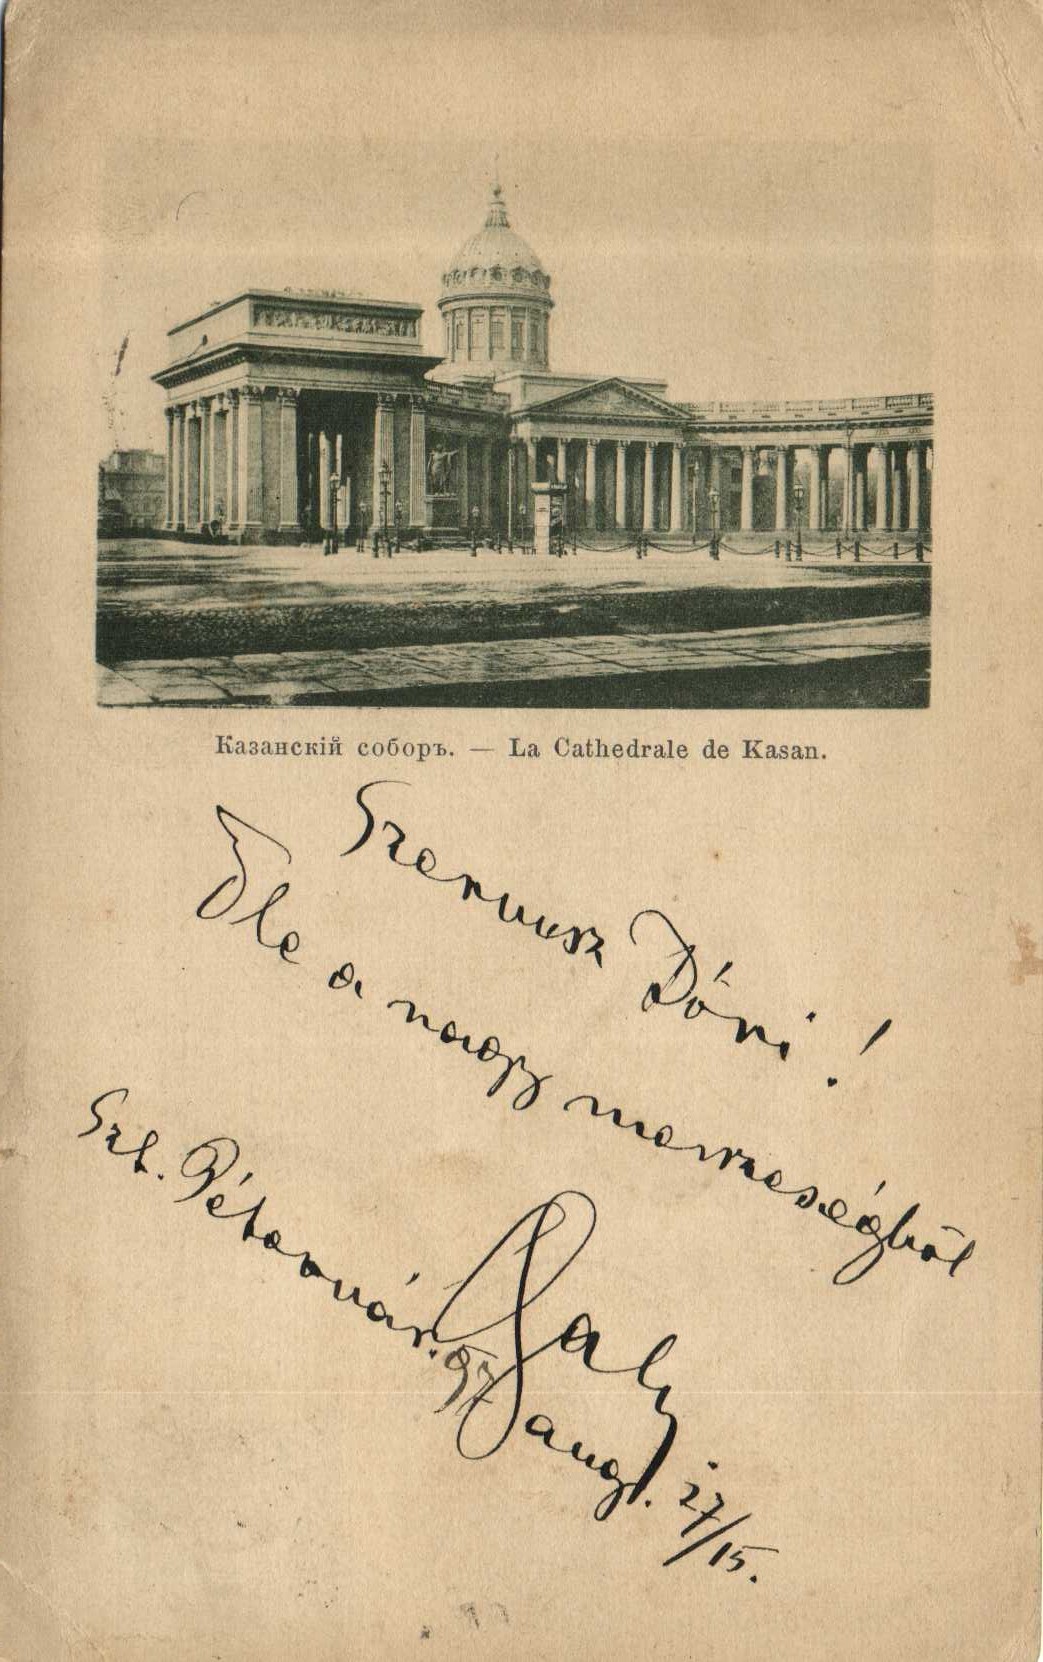 Казанскій соборъ. — La Cathedrale de Kasan.
Szervusz Dóri!
Ole a nagy messzeségből
Szt. Pétervár. 97 aug. 27/15.